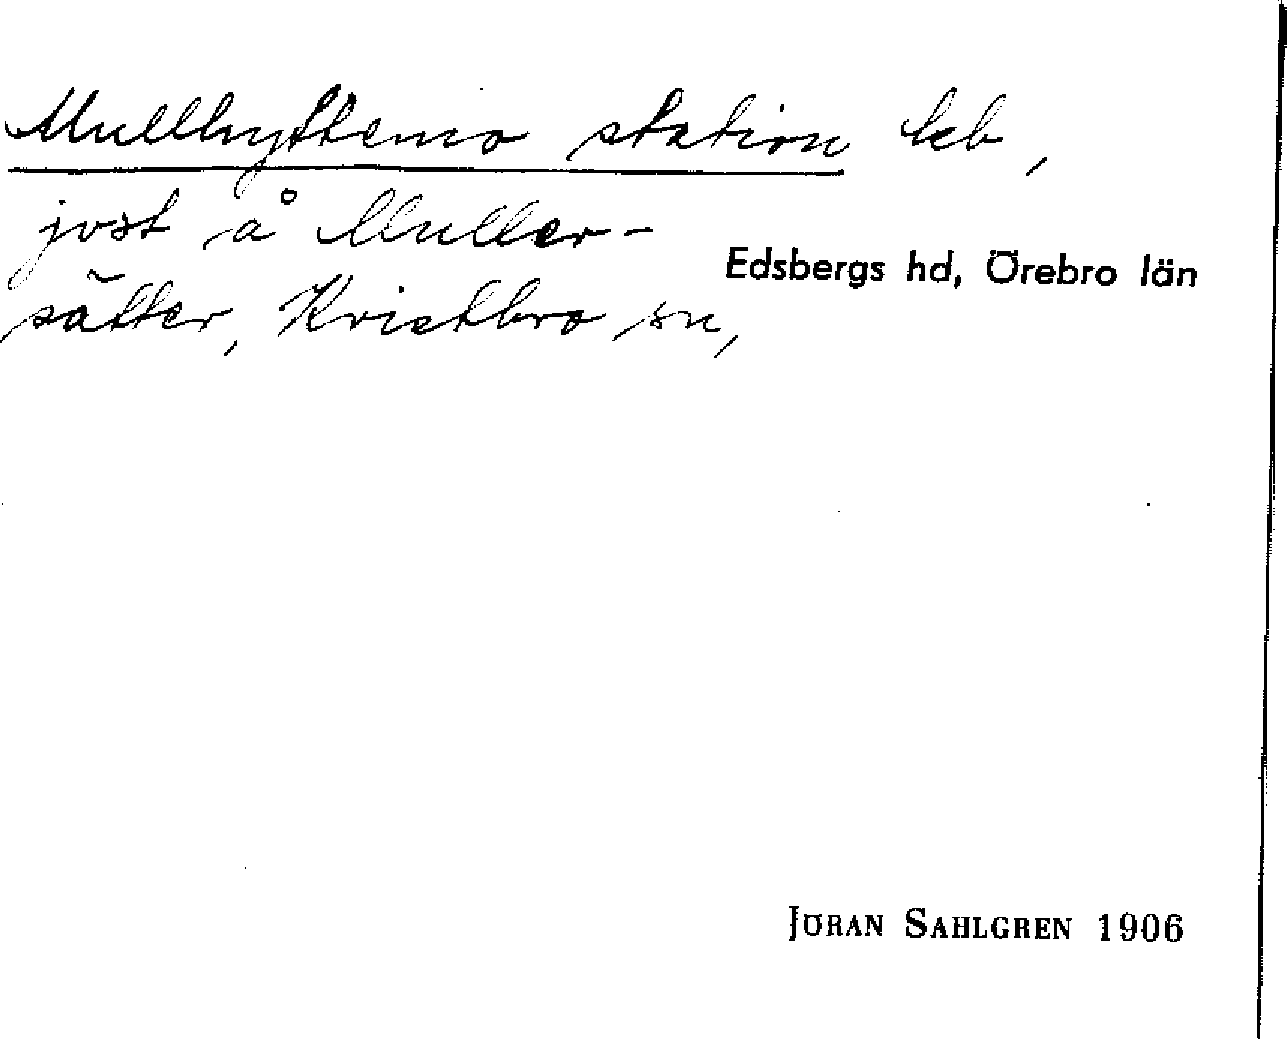 Mullhyttemo station leb,
jvst å Muller-
sätter, Kvistbro sn,
Edsbergs hd, Örebro län
JÖRAN SAHLGREN 1906